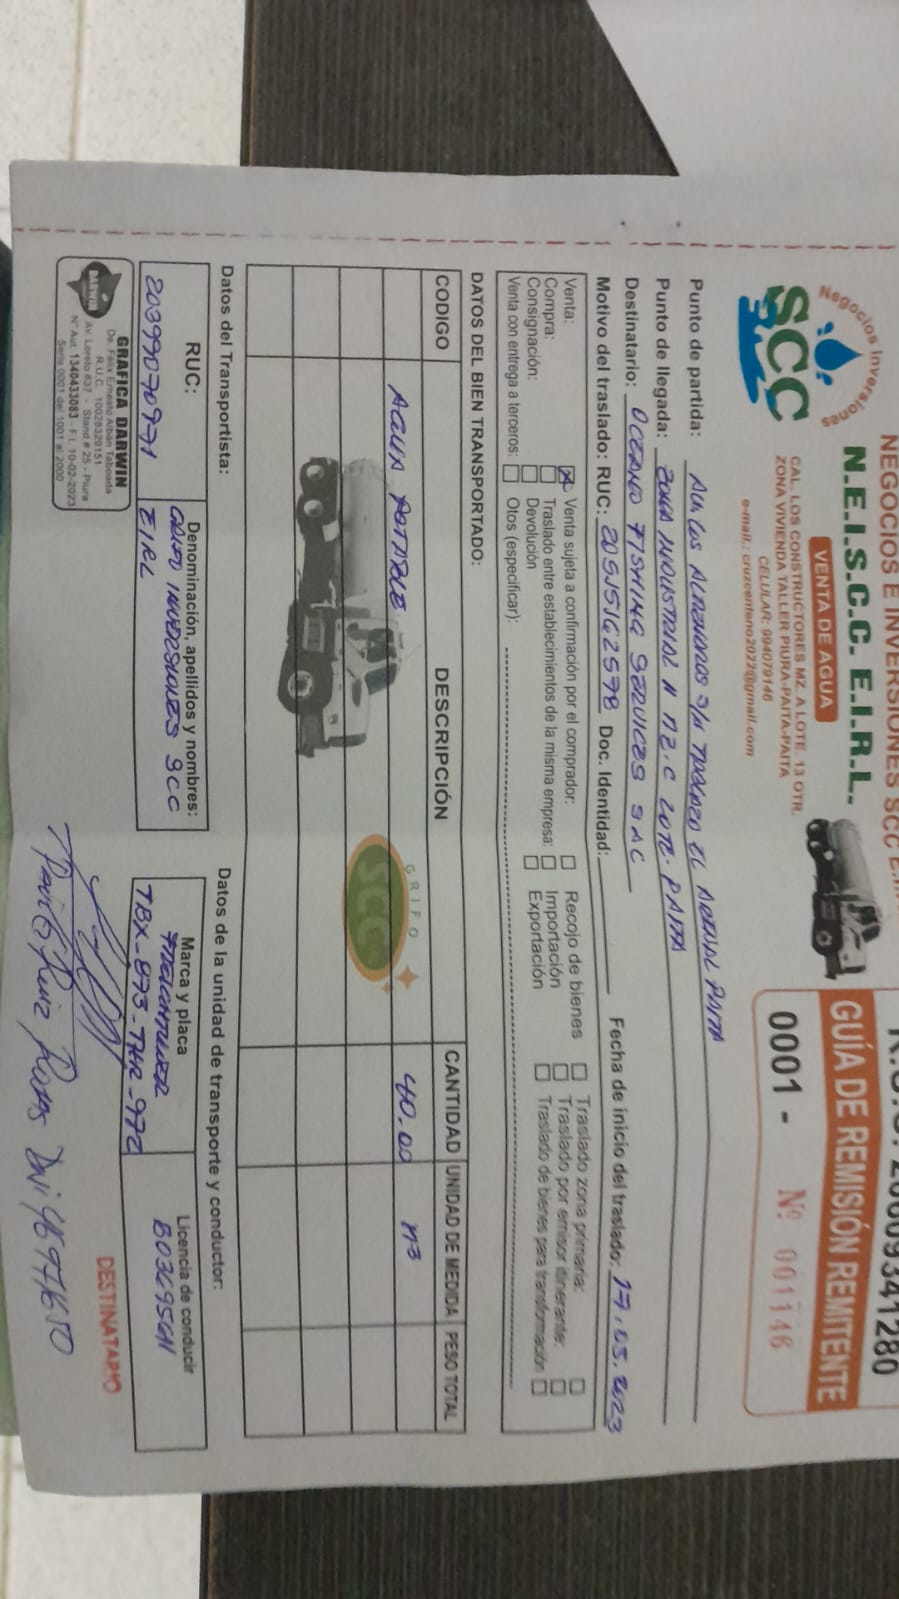 NEGOCIOS E INVERSIONES SCC
Negocios Inversiones
SCC
N.E.I.S.C.C. E.I.R.L.
VENTA DE AGUA
CAL. LOS CONSTRUCTORES MZ. A LOTE. 13 OTR.
ZONA VIVIENDA TALLER PIURA-PAITA-PAITA
CELULAR: 994079146
e-mail.: cruzcenteno2022@gmail.com
GUÍA DE REMISIÓN REMITENTE
0001 - Nº 001146
Punto de partida:
Punto de llegada: ZONA INDUSTRIAL II MZ.C LOTE. PAITA
Destinatario: OCEANO FISHING SERVICES SAC
Motivo del traslado: RUC: 20515162598 Doc. Identidad: Fecha de inicio del traslado: 17.05.2023
Venta: X Venta sujeta a confirmación por el comprador: Recojo de bienes Traslado zona primaria:
Compra: Traslado entre establecimientos de la misma empresa: Importación Traslado por emisor itinerante:
Consignación: Devolución Exportación Traslado de bienes para transformación
Venta con entrega a terceros: Otos (especificar):
DATOS DEL BIEN TRANSPORTADO:
CODIGO DESCRIPCIÓN CANTIDAD UNIDAD DE MEDIDA PESO TOTAL
AGUA POTABLE 40.00 M3
GRIFO
SCC
Datos del Transportista: Datos de la unidad de transporte y conductor:
RUC: Denominación, apellidos y nombres: Marca y placa Licencia de conducir
20399070971 GRIFO INVERSIONES SCC FREIGHTLINER
EIRL TBX-893-THR-972
DARWIN
GRAFICA DARWIN
De. Félix Ernesto Albán Taboada
R.U.C. 10028329151
Av. Loreto 637 - Stand # 25 - Piura
Nº Aut. 1340433083 - F.I. 10-02-2023
Serie 0001 del 1001 al 2000
DESTINATARIO